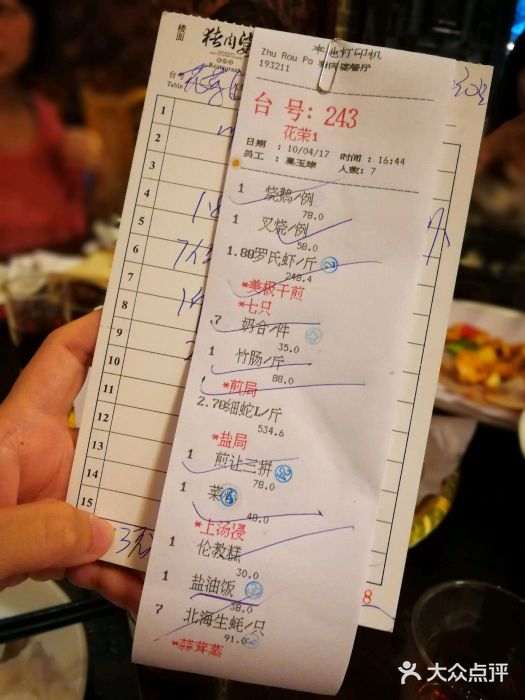 楼面
猪肉婆
Restaurant
台号
Table
本地打印机
Zhu Rou Po 猪肉婆餐厅
193211
台 号: 243
花荣1
日期 : 10/04/17 时间 : 16:44
员工 : 莫玉球 人数: 7
1 烧鹅/例
78.0
1 叉烧/例
58.0
1.80罗氏虾/斤
248.4
*美极干煎
*七只
7 奶合/件
35.0
1 竹肠/斤
88.0
*煎局
2.70细蛇L/斤
534.6
*盐局
1 煎让三拼
78.0
1 菜
48.0
*上汤浸
1 伦教糕
30.0
1 盐油饭
38.0
7 北海生蚝/只
91.0
*蒜茸蒸
1
2
3
4
5
6
7
8
9
10
11
12
13
14
15
8
大众点评